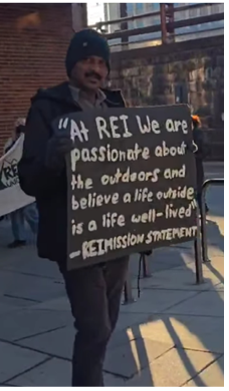 "At REI We are
passionate about
the outdoors and
believe a life outside
is a life well-lived"
-REI MISSION STATEMENT